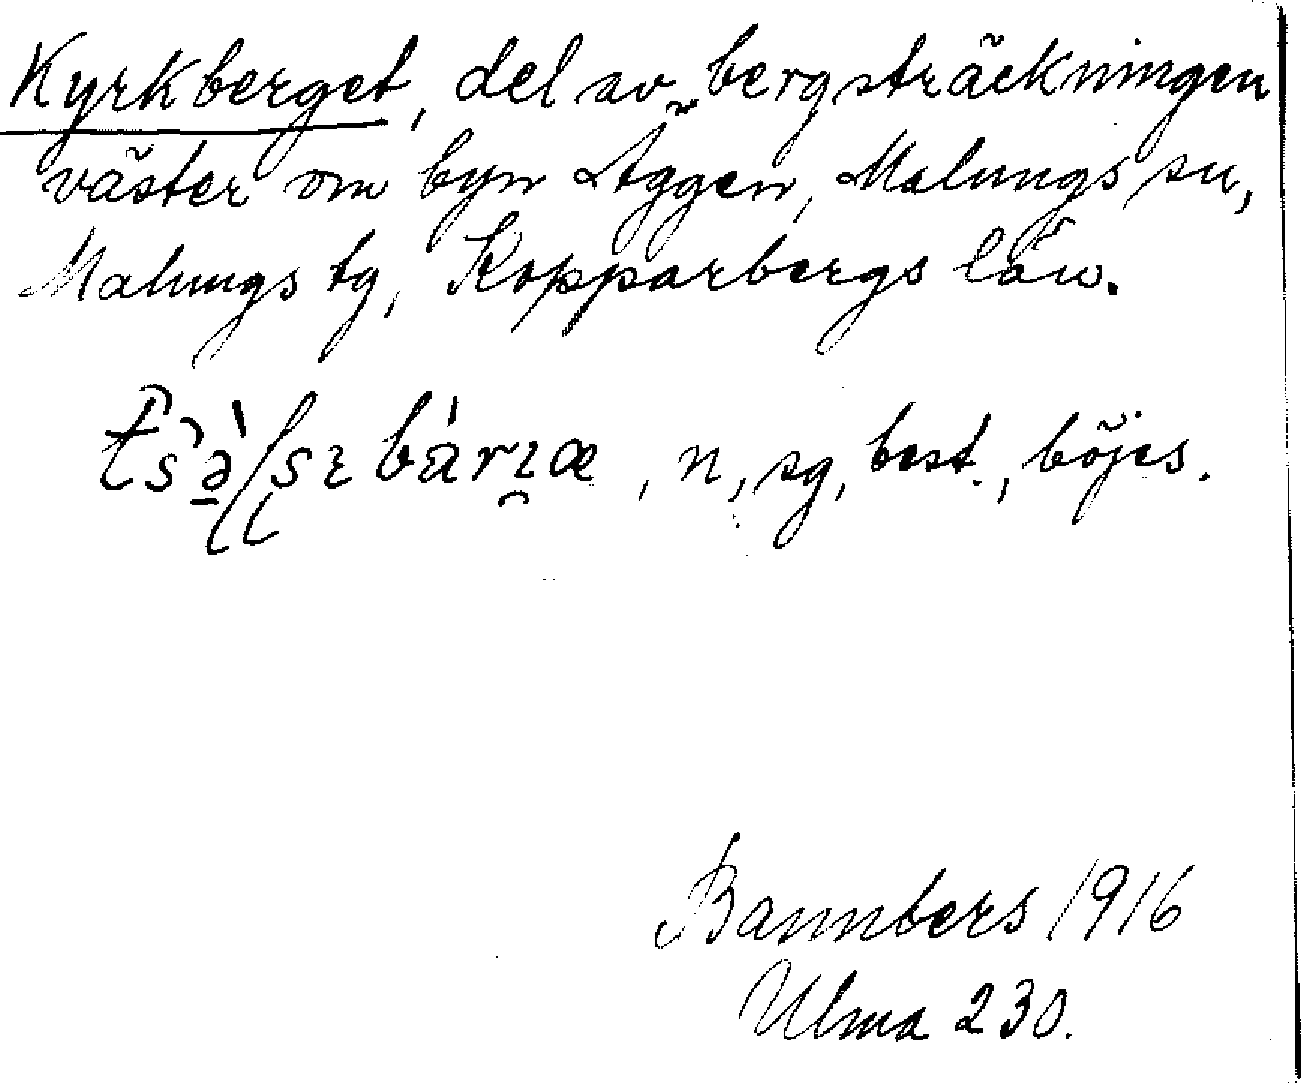 Kyrkberget, del av bergsträckningen
väster om byn Äggen, Malungs sn,
Malungs tg, Kopparbergs län.
, n, sg, best., böjes.
Bannbers 1916
Ulma 230.